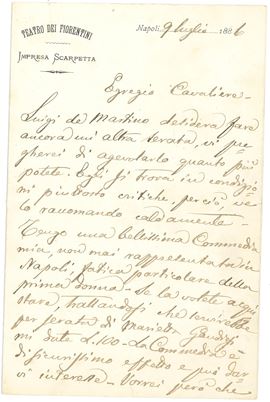 TEATRO DEI FIORENTINI
IMPRESA SCARPETTA
Napoli, 9 luglio 1886
Egregio Cavaliere -
Luigi de Martino desidera fare
ancora un altra serata, vi pre
gherei di agevolarlo quanto più
potete. Egli si trova in condizio
ni piuttosto critiche perciò ve
lo raccomando caldamente -
Tengo una bellissima Commedia
mia, non mai rappresentata in
Napoli, fatica particolare della
prima donna - Se la volete acqui
stare, trattandosi che
per serata di Marietta
mi date £. 100 - La Commedia è
di sicurissimo effetto e può dar
vi interesse - Vorrei però che